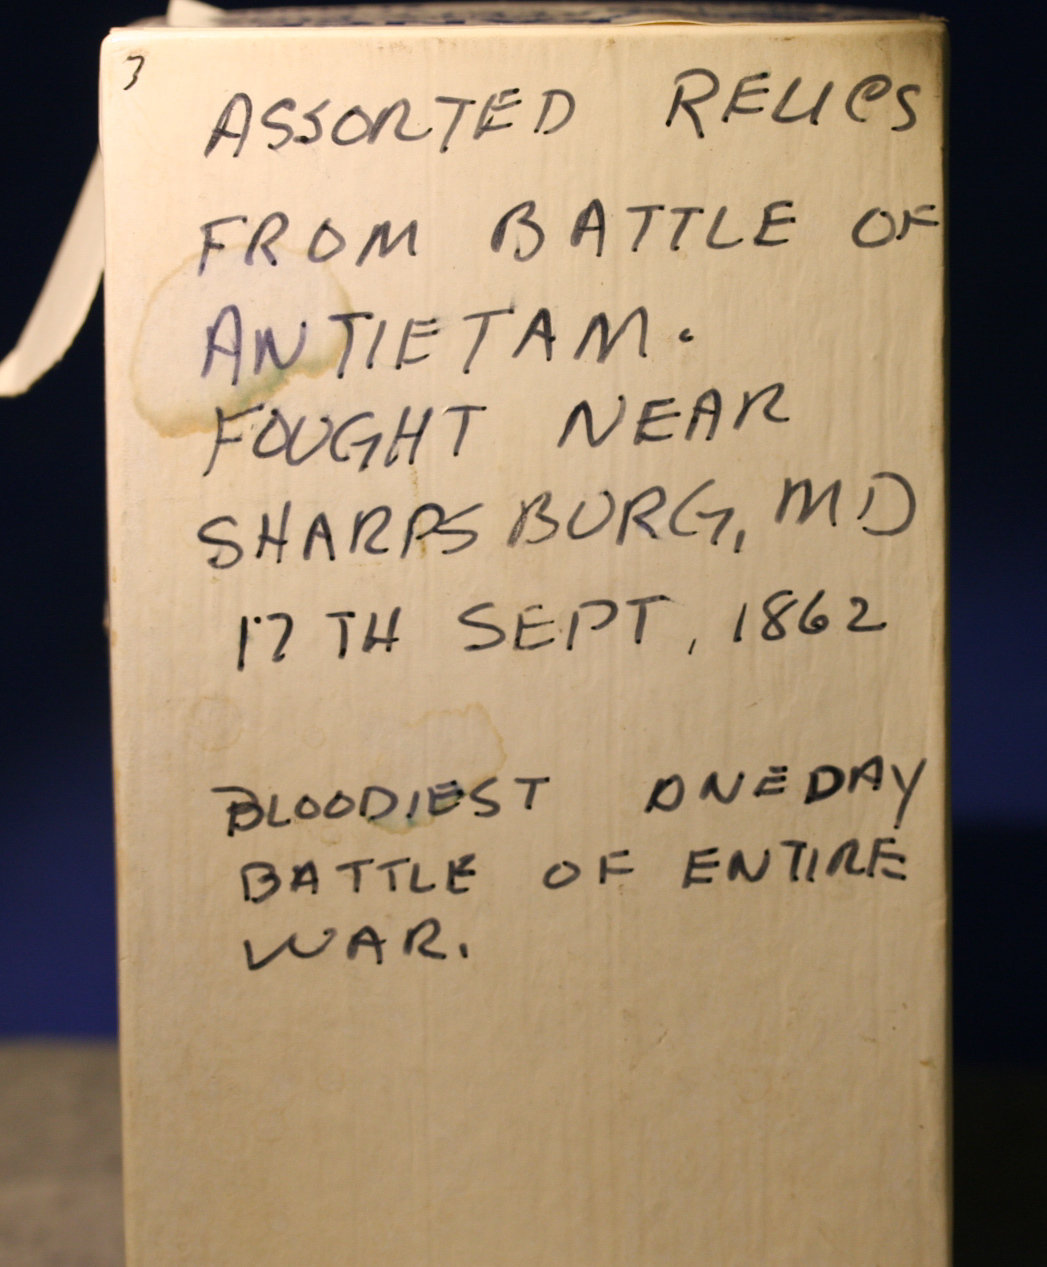 3
ASSORTED RELICS
FROM BATTLE OF
ANTIETAM.
FOUGHT NEAR
SHARPSBURG, MD
17TH SEPT, 1862
BLOODIEST ONE DAY
BATTLE OF ENTIRE
WAR.